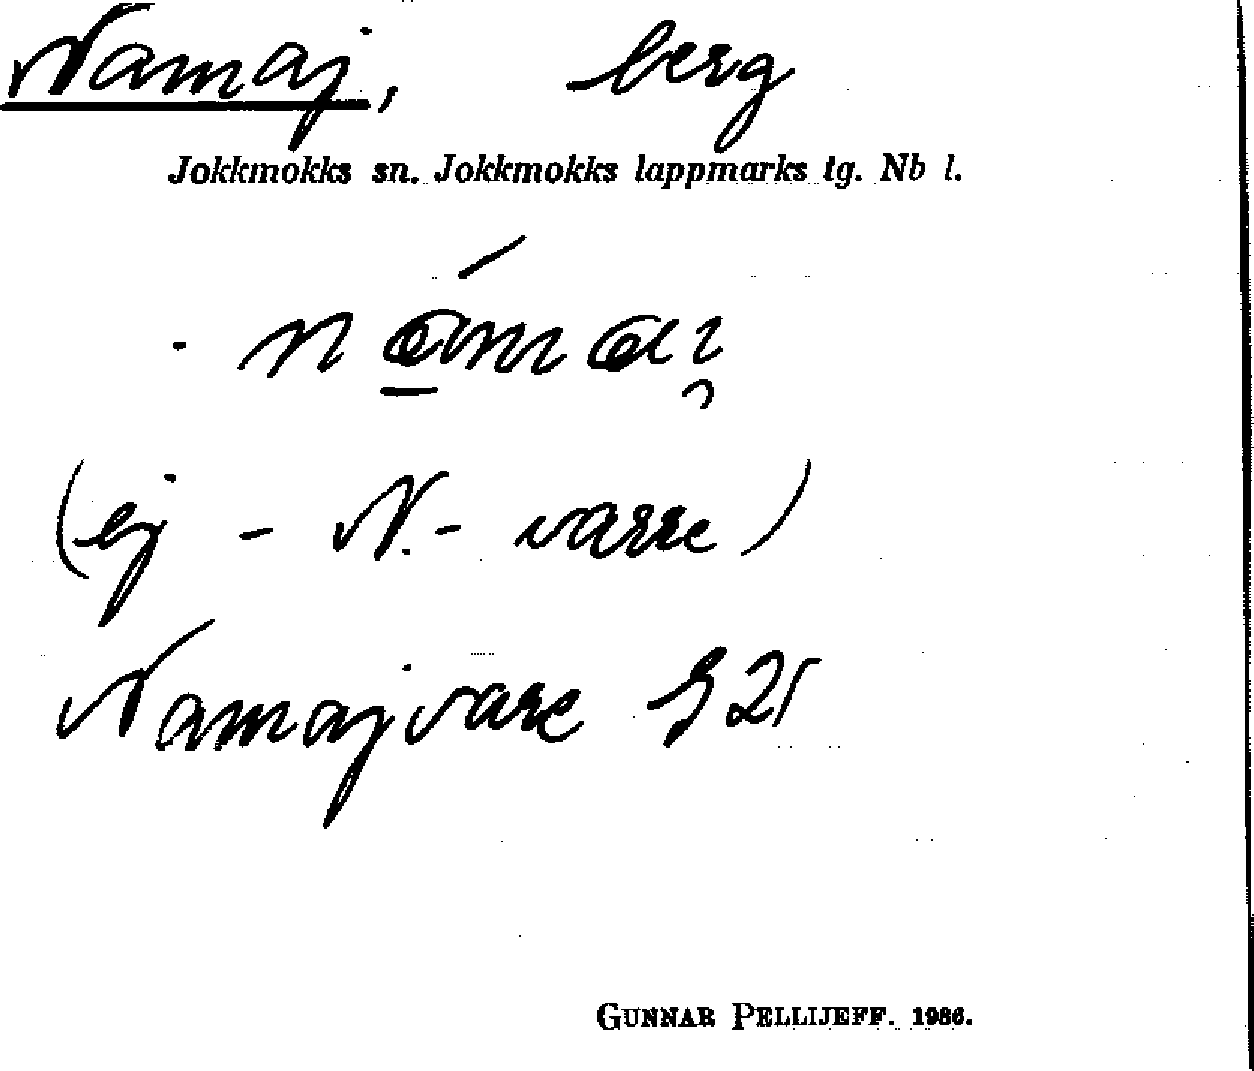 Namaj, berg
Jokkmokks sn. Jokkmokks lappmarks tg. Nb l.
(ej - N.- varre)
Namajvare
GUNNAR PELLIJEFF. 1986.